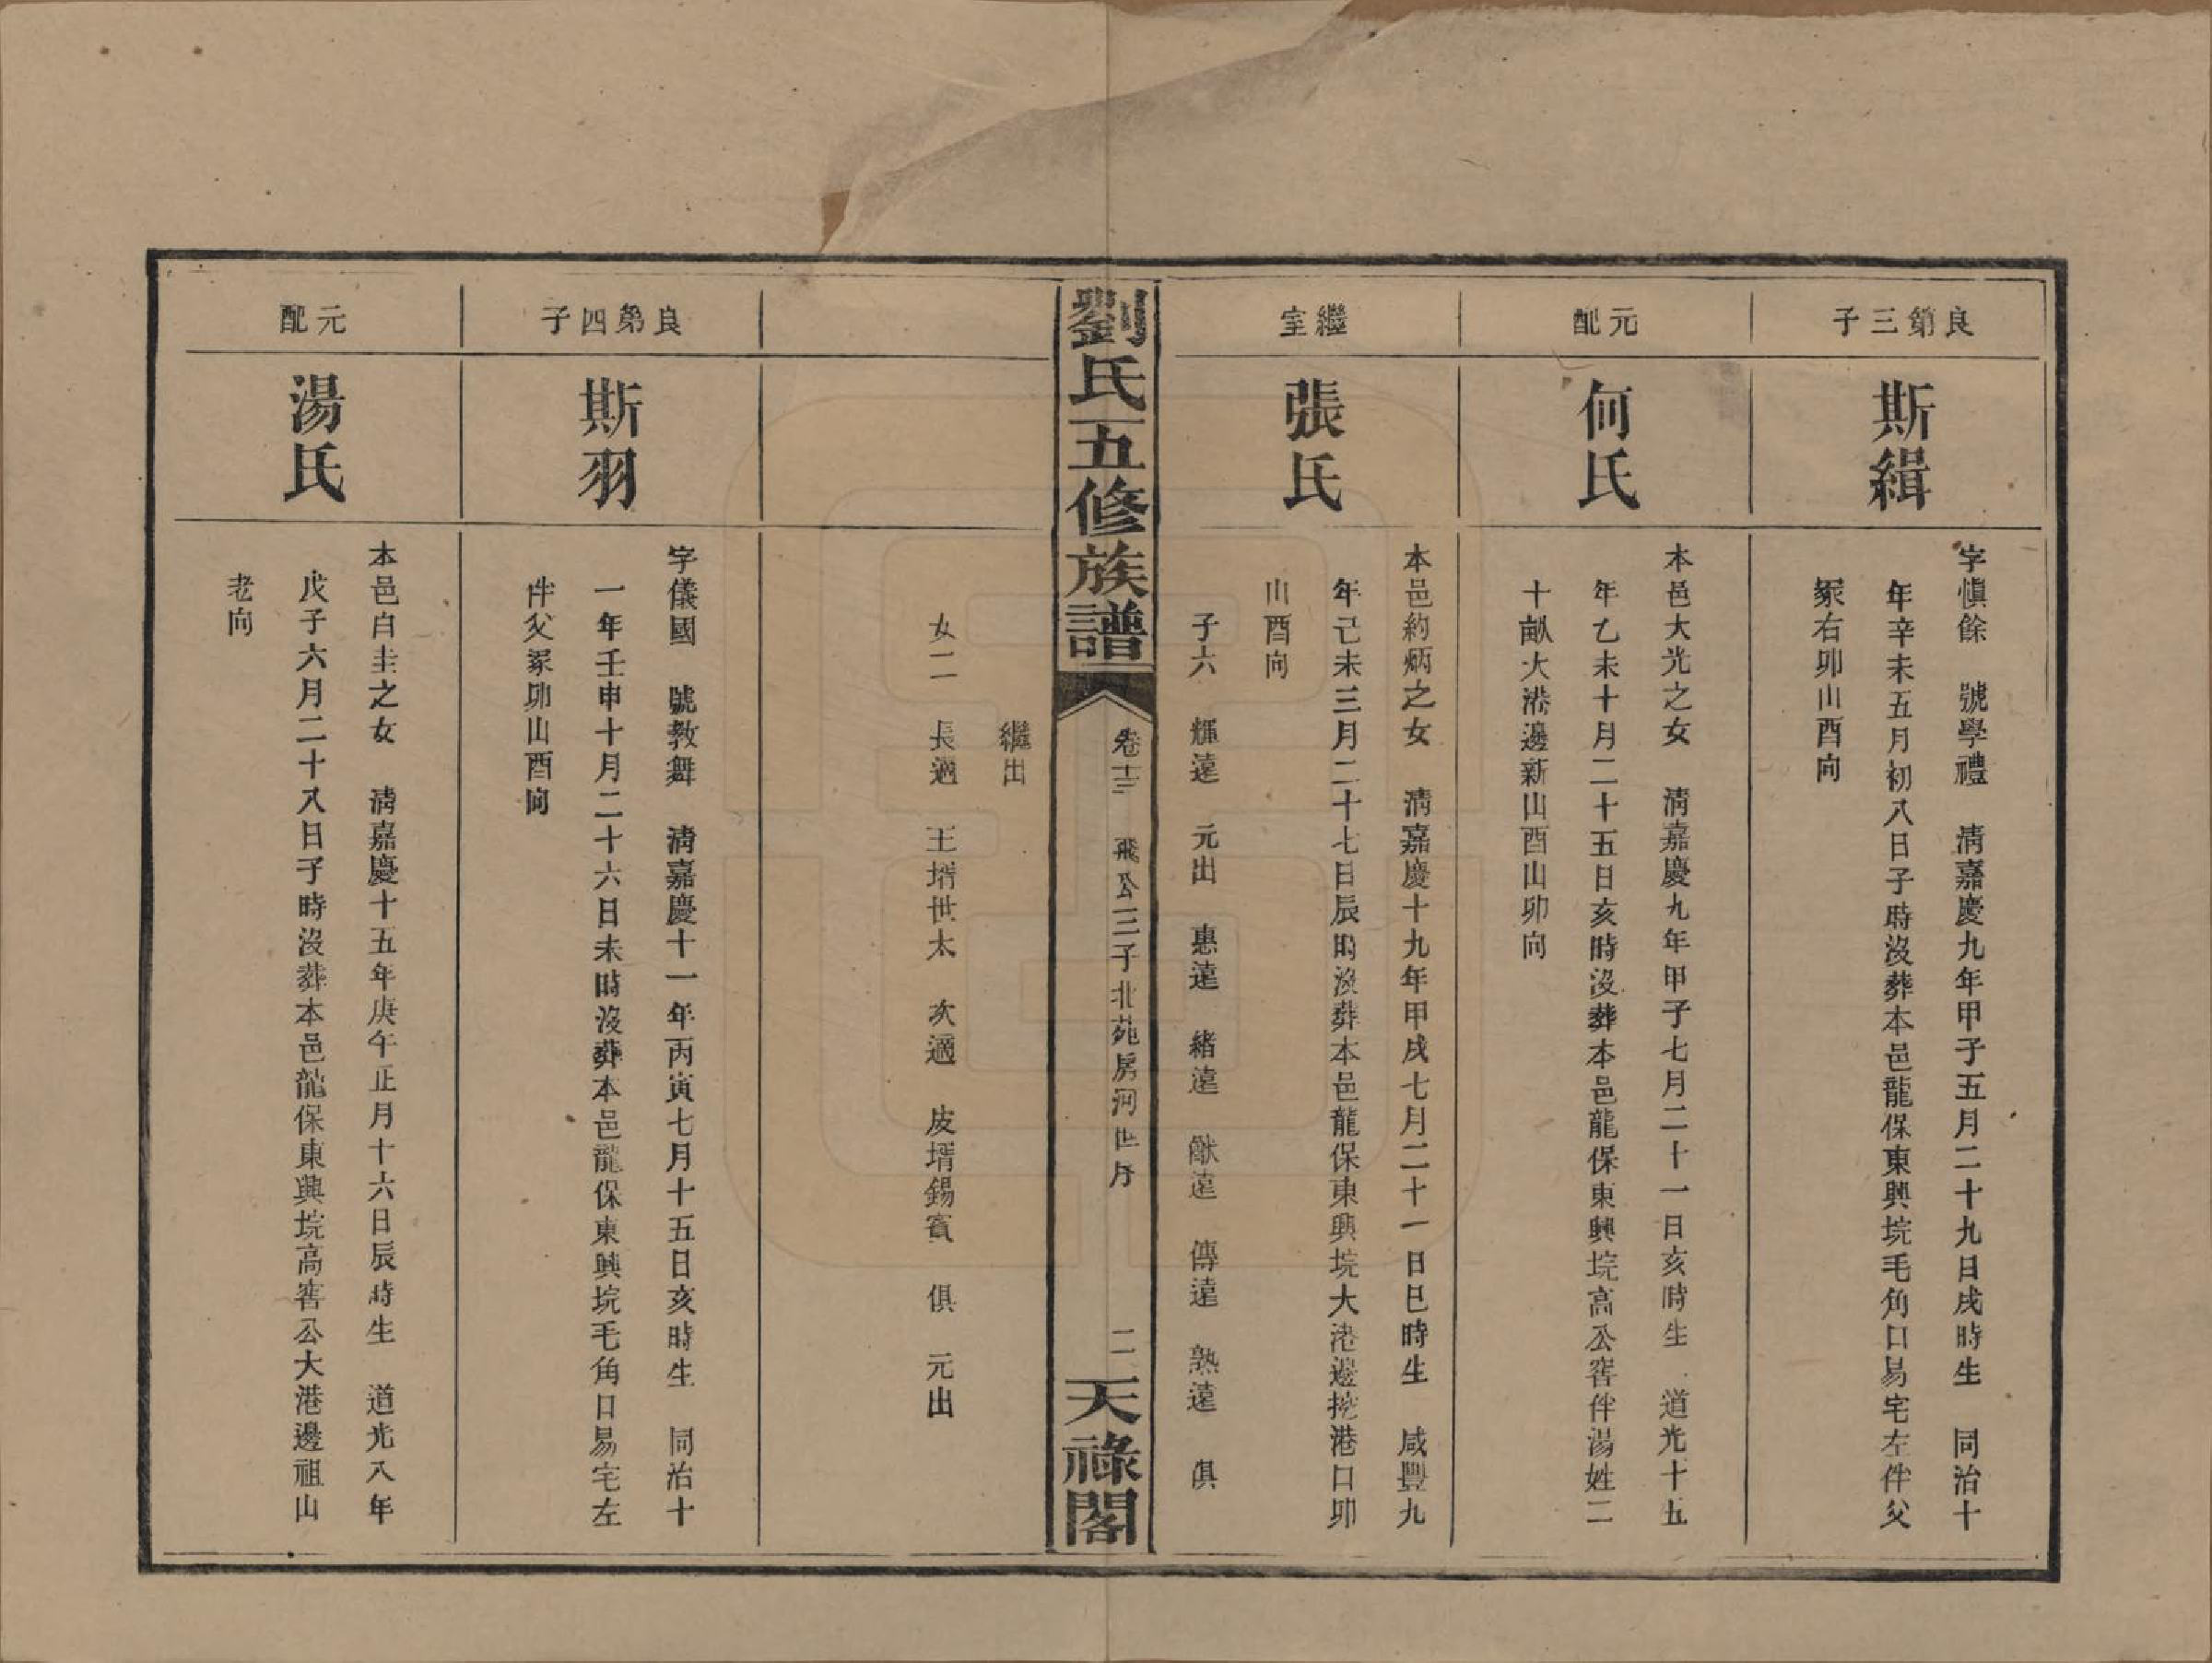 良第三子
斯緝
字愼餘　號學禮　淸嘉慶九年甲子五月二十九日戌時生　同治十
年辛未五月初八日子時沒葬本邑龍保東興垸毛角口易宅左伴父
冢右卯山酉向
元配
何氏
本邑大光之女　淸嘉慶九年甲子七月二十一日亥時生　道光十五
年乙未十月二十五日亥時沒葬本邑龍保東興垸高公窖伴湯姓二
十畝大港邊新山酉山卯向
繼室
張氏
本邑約炳之女　淸嘉慶十九年甲戌七月二十一日巳時生　咸豐九
年己未三月二十七日辰時沒葬本邑龍保東興垸大港邊挖港口卯
山酉向
子六　輝遠　元出　惠遠　緒遠　猷遠　傳遠　熟遠　俱
劉氏五修族譜
卷十三　飛公三子北苑房河世序　二
天祿閣
繼出
女二　長適　王壻世太　次適　皮壻錫賓　俱　元出
良第四子
斯羽
字儀國　號教舞　淸嘉慶十一年丙寅七月十五日亥時生　同治十
一年壬申十月二十六日未時沒葬本邑龍保東興垸毛角口易宅左
伴父冢卯山酉向
元配
湯氏
本邑白圭之女　淸嘉慶十五年庚午正月十六日辰時生　道光八年
戊子六月二十八日子時沒葬本邑龍保東興垸高窖公大港邊祖山
老向